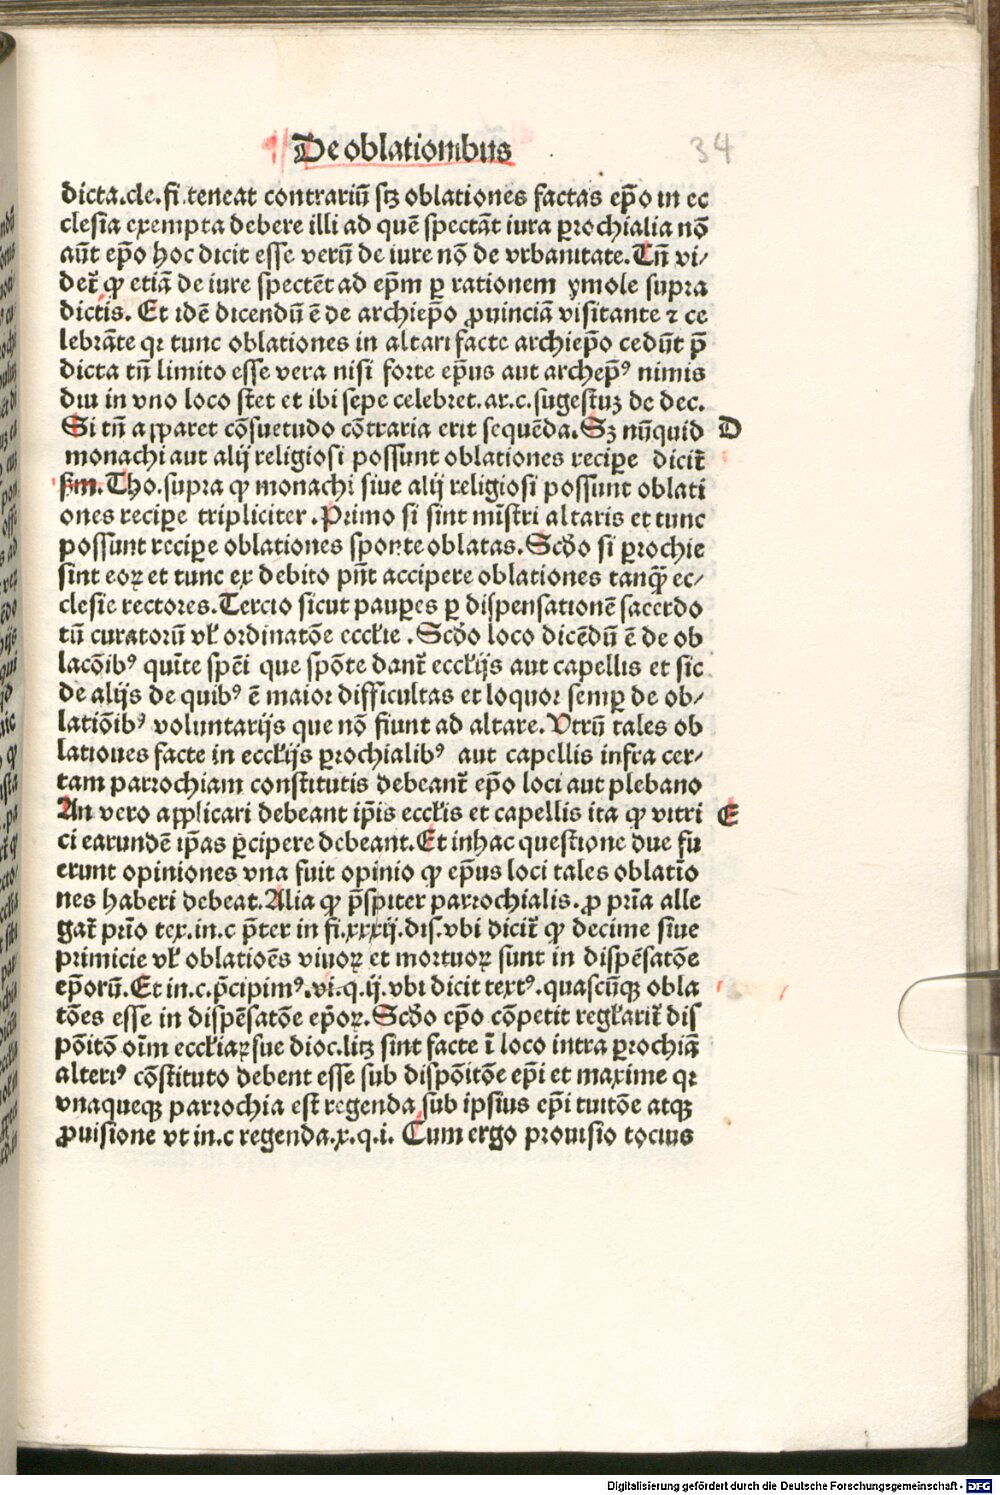 De oblationibus
34
dicta.cle.fi.teneat contrariū sꝫ oblationes factas ep̄o in ec
clesia exempta debere illi ad quē spectāt iura ꝑrochialia nō
aūt ep̄o hoc dicit esse verū de iure nō de vrbanitate.Tn̄ vi⸗
det̄ ꝙ etiā de iure spectēt ad ep̄m ꝑ rationem ymole supra
dictis. Et idē dicendū ē de archiep̄o ꝓuinciā visitante ⁊ ce
lebrāte qꝛ tunc oblationes in altari facte archiep̄o cedūt p̄
dicta tn̄ limito esse vera nisi forte ep̄us aut archep̄ꝰ nimis
diu in vno loco stet et ibi sepe celebret.ar.c.sugestuꝫ de dec.
Si tn̄ apparet cōsuetudo cōtraria erit sequēda.Sꝫ nūquid D
monachi aut alij religiosi possunt oblationes reciꝑe dicit̄
ẜm.Tho.supra ꝙ monachi siue alij religiosi possunt oblati
ones reciꝑe tripliciter.Primo si sint mīstri altaris et tunc
possunt reciꝑe oblationes sponte oblatas.Scd̄o si ꝑrochie
sint eoꝝ et tunc ex debito pn̄t accipere oblationes tanq̄ꝫ ec⸗
clesie rectores.Tercio sicut pauꝑes ꝑ dispensationē sacerdo
tū curatorū vł ordinatōe eccłie .Scd̄o loco dicēdū ē de ob
lacōibꝰ quīte spēi que spōte dant̄ eccłijs aut capellis et sic
de alijs de quibꝰ ē maior difficultas et loquor semꝑ de ob⸗
latiōibꝰ voluntarijs que nō fiunt ad altare.Vtrū tales ob
lationes facte in eccłijs ꝑrochialibꝰ aut capellis infra cer⸗
tam parrochiam constitutis debeant̄ ep̄o loci aut plebano
An vero applicari debeant ip̄is eccłis et capellis ita ꝙ vitri E
ci earundē ip̄as ꝑcipere debeant.Et inhac questione due fu
erunt opiniones vna fuit opinio ꝙ ep̄us loci tales oblatio
nes haberi debeat.Alia ꝙ p̄sp̄iter parrochialis.ꝓ pr̄ia alle
gat̄ pr̄io tex.in.c p̄ter in fi.xxxij.dis.vbi dicit̄ ꝙ decime siue
primicie vł oblatiōes viuoꝝ et mortuoꝝ sunt in dispēsatōe
ep̄orū.Et in.c.p̄cipimꝰ.vi.q.ij.vbi dicit textꝰ.quascūqꝫ obla
tōes esse in dispēsatōe ep̄oꝝ.Scd̄o ep̄o cōpetit regłarit̄ dis
pōitō oīm eccłiaꝝ sue dioc.litꝫ sint facte ī loco intra ꝑrochiā
alteriꝰ cōstituto debent esse sub dispōitōe ep̄i et maxime qꝛ
vnaqueqꝫ parrochia est regenda sub ipsius ep̄i tuitōe atqꝫ
ꝓuisione vt in.c regenda.x.q.i. Cum ergo prouisio tocius
Digitalisierung gefördert durch die Deutsche Forschungsgemeinschaft - DFG